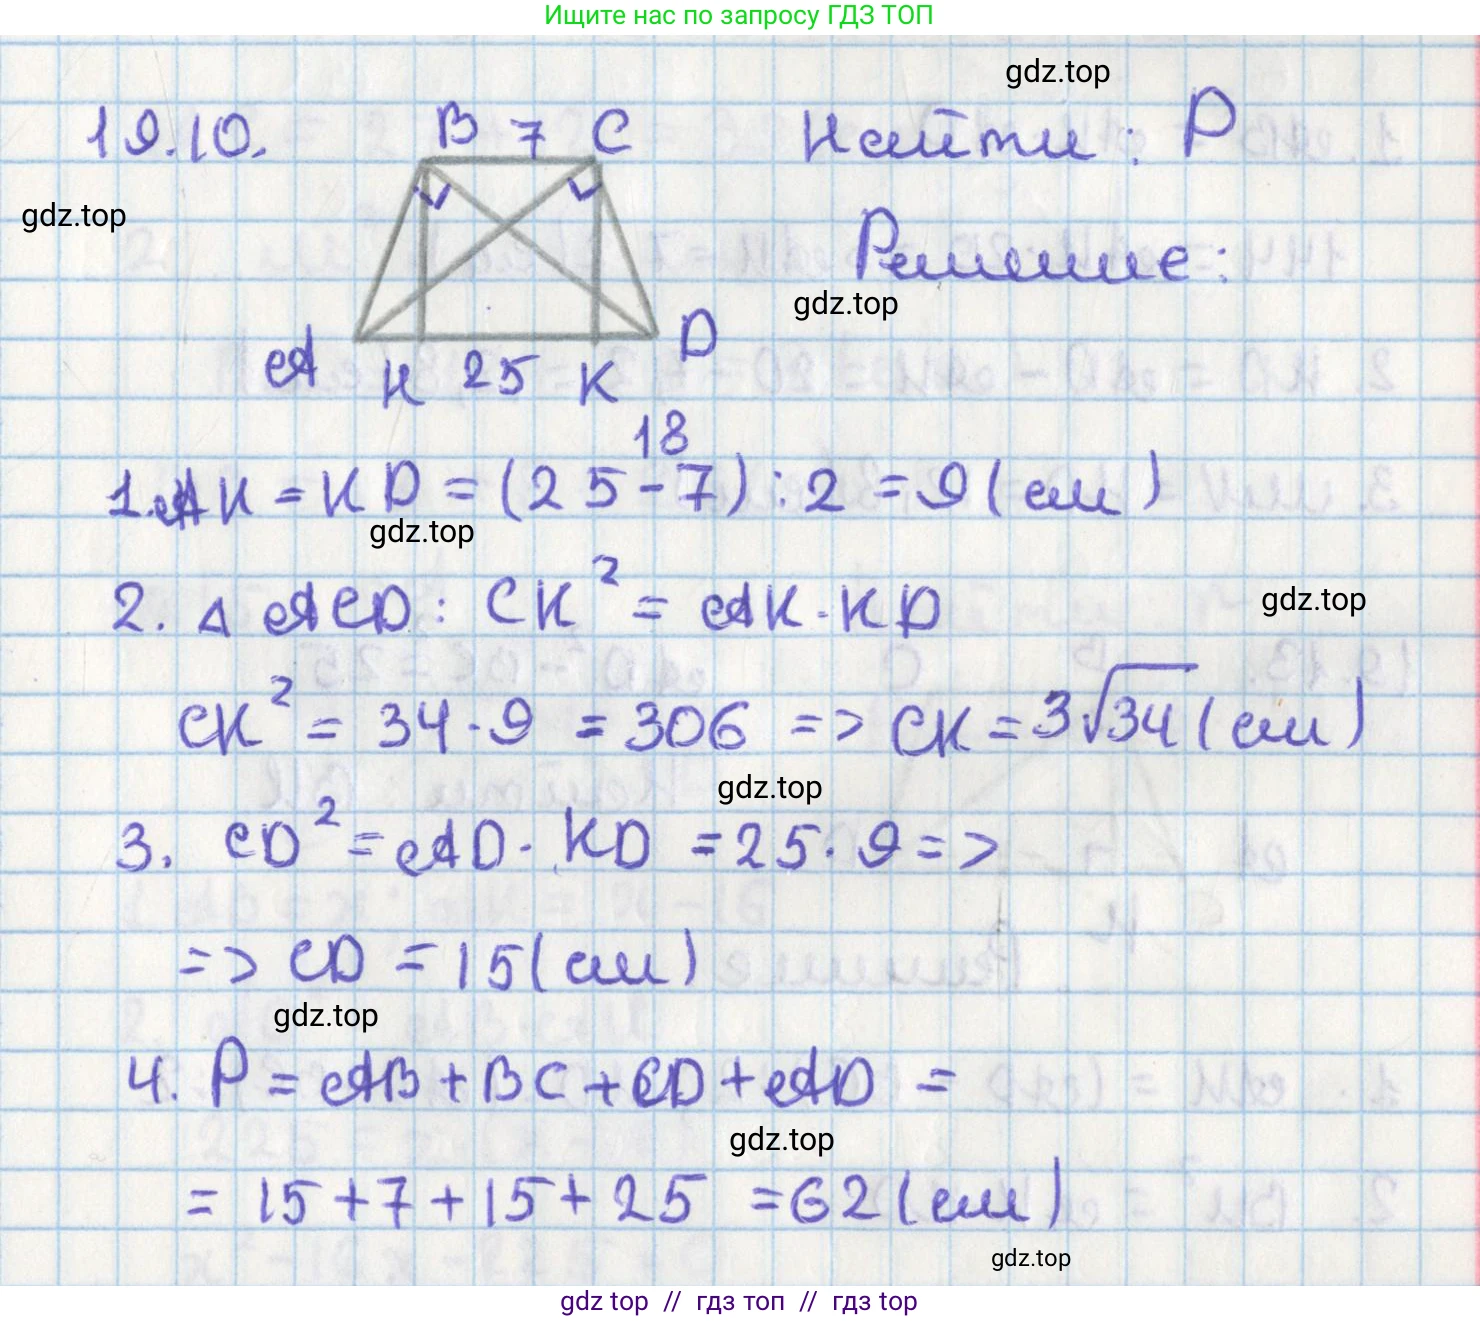 Ищите нас по запросу ГДЗ ТОП
gdz.top
19.10.
B 7 C
Найти: P
gdz.top
Решение:
gdz.top
A H 25 K D
18
1. AH = KD = (25 - 7) : 2 = 9 (см)
gdz.top
2. △ ACD: CK² = AK · KD
gdz.top
CK² = 34 · 9 = 306 => CK = 3√34 (см)
gdz.top
3. CD² = AD · KD = 25 · 9 =>
=> CD = 15 (см)
gdz.top
4. P = AB + BC + CD + AD =
gdz.top
= 15 + 7 + 15 + 25 = 62 (см)
gdz.top
gdz top // гдз топ // гдз top